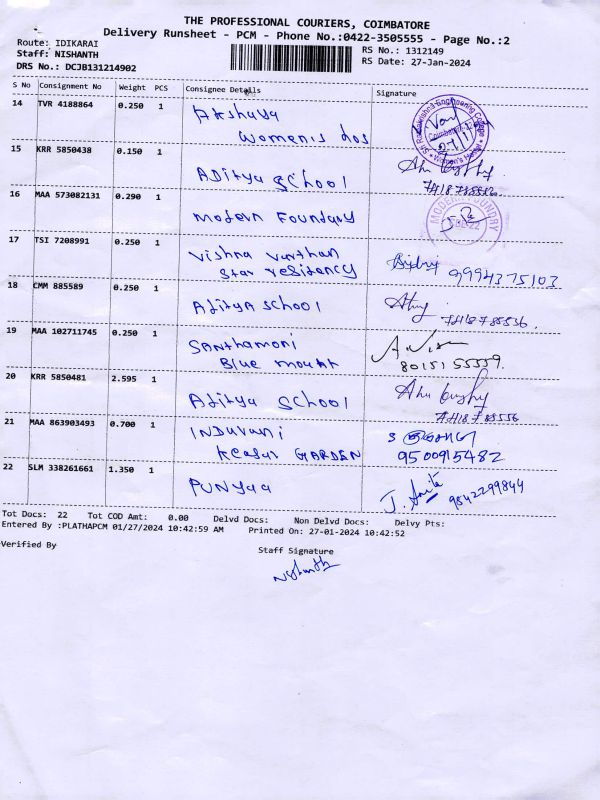 THE PROFESSIONAL COURIERS, COIMBATORE
Delivery Runsheet - PCM - Phone No.:0422-3505555 - Page No.:2
Route: IDIKARAI
Staff: NISHANTH
DRS No.: DCJB131214902
RS No.: 1312149
RS Date: 27-Jan-2024
S No Consignment No Weight PCS Consignee Details Signature
14 TVR 4188864 0.250 1 Akshaya
womenis hos
15 KRR 5850438 0.150 1 ADitya school
16 MAA 573082131 0.290 1 modern Foundary
MODERN FOUNDRY
17 TSI 7208991 0.250 1 vishnu varthan
star residency 9994375103
18 CMM 885589 0.250 1 Aditya school
7418785536.
19 MAA 102711745 0.250 1 SANthamani
Blue mount 8015155559.
20 KRR 5850481 2.595 1 Aditya school
7418785556
21 MAA 863903493 0.700 1 INDuvani
Keasar GARDEN 9500915482
22 SLM 338261661 1.350 1 PUNyaa 9842299844
Tot Docs: 22 Tot COD Amt: 0.00 Delvd Docs: Non Delvd Docs: Delvy Pts:
Entered By :PLATHAPCM 01/27/2024 10:42:59 AM Printed On: 27-01-2024 10:42:52
Verified By
Staff Signature
Nishanth